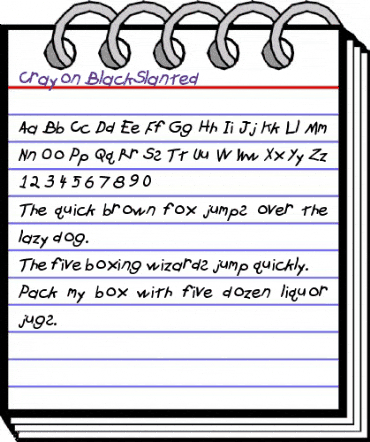 Crayon BlackSlanted
Aa Bb Cc Dd Ee Ff Gg Hh Ii Jj Kk Ll Mm
Nn Oo Pp Qq Rr Ss Tt Uu Vv Ww Xx Yy Zz
1234567890
The quick brown fox jumps over the
lazy dog.
The five boxing wizards jump quickly.
Pack my box with five dozen liquor
jugs.